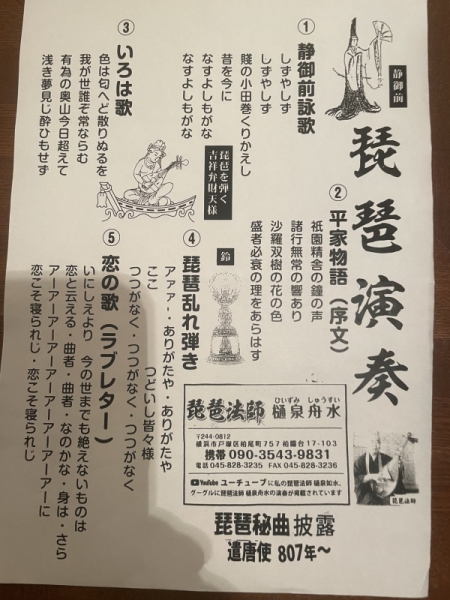 琵琶演奏
静御前
① 静御前詠歌
しずやしず
しずやしず
賤の小田巻くりかえし
昔を今に
なすよしもがな
なすよしもがな
② 平家物語（序文）
祇園精舎の鐘の声
諸行無常の響あり
沙羅双樹の花の色
盛者必衰の理をあらはす
③ いろは歌
色は匂へど散りぬるを
我が世誰ぞ常ならむ
有為の奥山今日超えて
浅き夢見じ酔ひもせず
琵琶を弾く
吉祥弁財天様
鈴
④ 琵琶乱れ弾き
アァァー・ありがたや・ありがたや
ここ　つどいし皆々様
つつがなく・つつがなく・つつがなく
⑤ 恋の歌（ラブレター）
いにしえより　今の世までも絶えないものは
恋と云える・曲者・曲者・なのかな・身は・さら
アーアーアーアーアーアーアーアーアーに
恋こそ寝られじ・恋こそ寝られじ
琵琶法師 樋泉舟水
ひいずみ しゅうすい
〒244-0812
横浜市戸塚区柏尾町757柏陽台17-103
携帯 090-3543-9831
電話 045-828-3235 FAX 045-828-3236
YouTube ユーチューブに私の琵琶法師 樋泉如水、
グーグルに琵琶法師 樋泉舟水の演奏が掲載されています
琵琶法師
琵琶秘曲 披露
遣唐使 807年〜